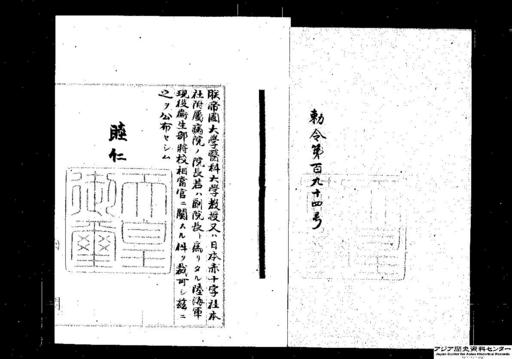 勅令第百九十四号
朕帝國大學醫科大學教授又ハ日本赤十字社本
社附属病院ノ院長若ハ副院長ト為リタル陸海軍
現役衛生部将校相當官ニ関スル件ヲ裁可シ茲ニ
之ヲ公布セシム
睦仁
天皇
御璽
アジア歴史資料センター
Japan Center for Asian Historical Records